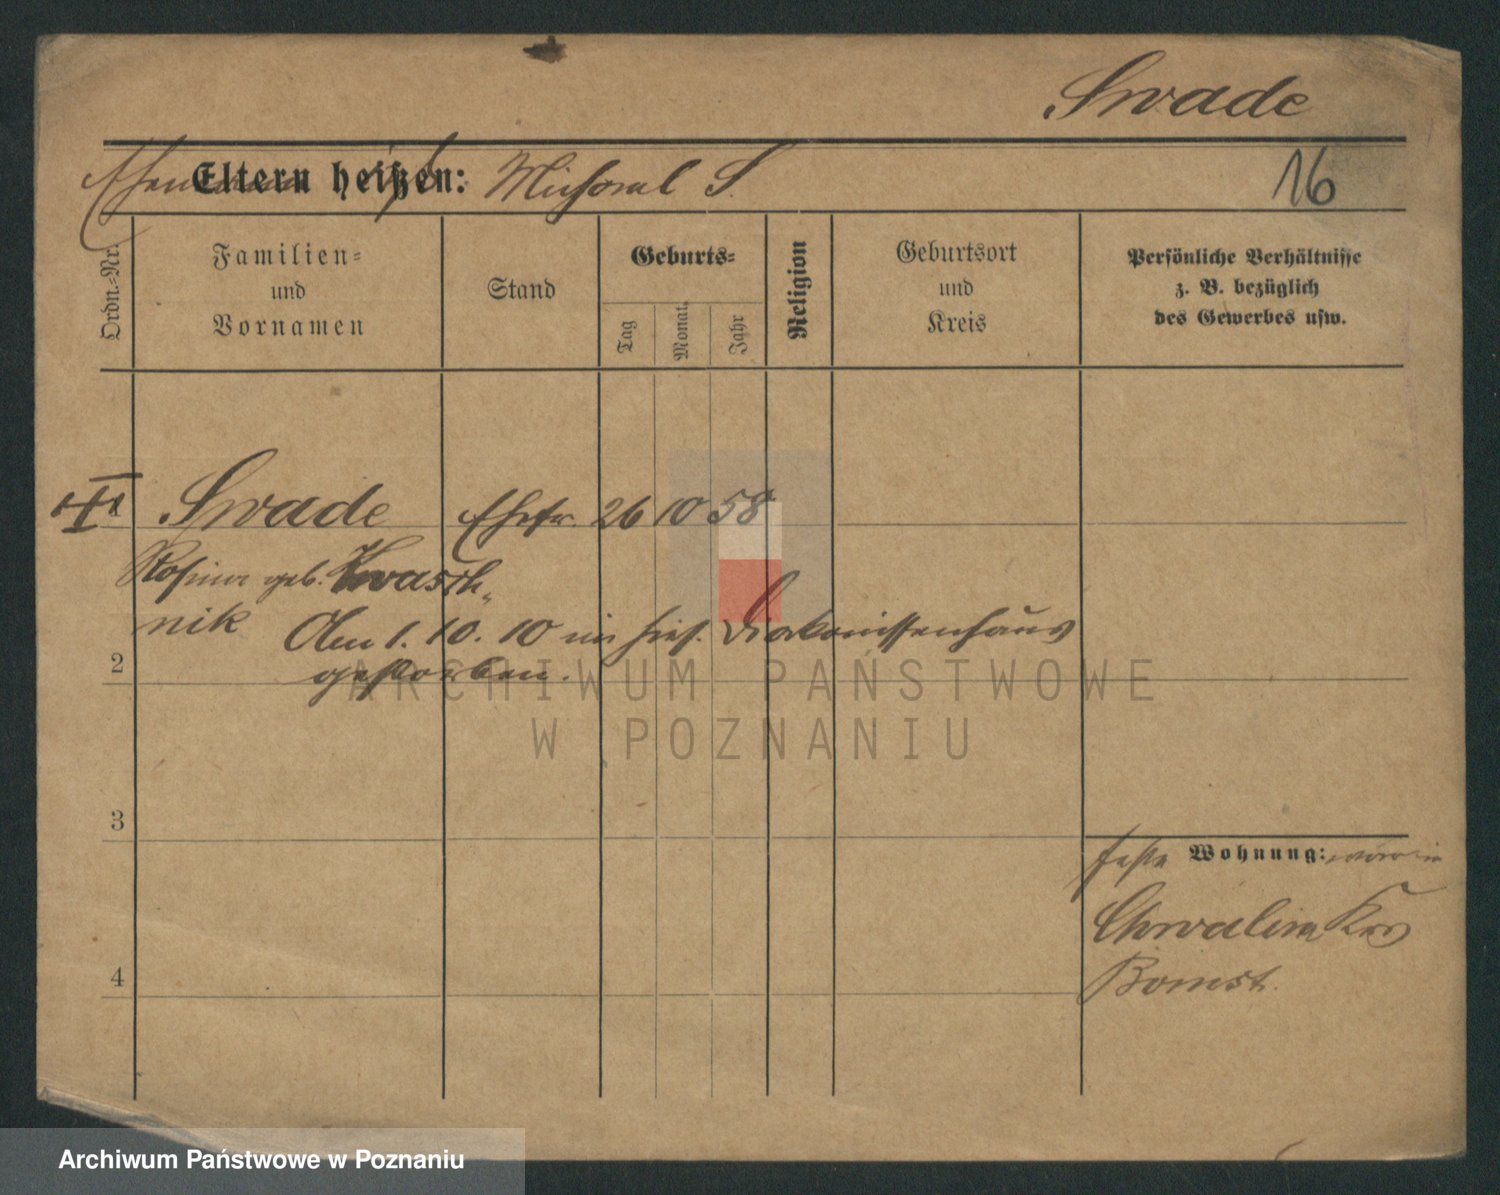 Swade
Eltern heißen: Michael S.
16
Ordn.-Nr.
Familien-
und
Vornamen
Stand
Geburts-
Tag
Monat
Jahr
Religion
Geburtsort
und
Kreis
Persönliche Verhältnisse
z. B. bezüglich
des Gewerbes usw.
1 Swade Ehefr. 26 10 58
Rosina geb. Kwasch-
nik
Am 1. 10. 10 im hies. Diakonissenhaus
gestorben.
2
3
4
feste Wohnung: war in
Chwalim Krs
Bomst.
ARCHIWUM PAŃSTWOWE
W POZNANIU
Archiwum Państwowe w Poznaniu